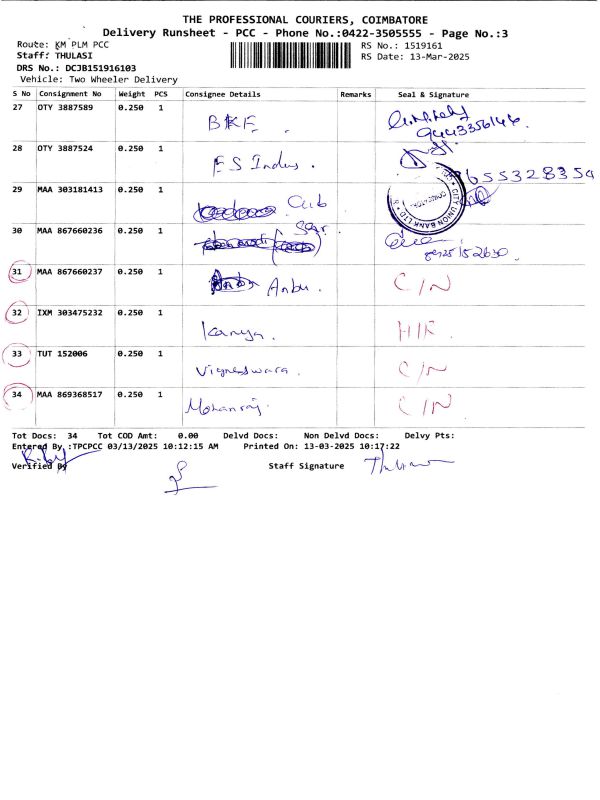 THE PROFESSIONAL COURIERS, COIMBATORE
Delivery Runsheet - PCC - Phone No.:0422-3505555 - Page No.:3
Route: KM PLM PCC
RS No.: 1519161
Staff: THULASI
RS Date: 13-Mar-2025
DRS No.: DCJB151916103
Vehicle: Two Wheeler Delivery
S No Consignment No Weight PCS Consignee Details Remarks Seal & Signature
27 OTY 3887589 0.250 1 BKE
9443356146
28 OTY 3887524 0.250 1 ES Indus.
655328354
29 MAA 303181413 0.250 1 Cub
CITY UNION BANK LTD
30 MAA 867660236 0.250 1
8925152630
31 MAA 867660237 0.250 1 Anbu. C/N
32 IXM 303475232 0.250 1 Kanya. HIR
33 TUT 152006 0.250 1 Vigneswara. C/N
34 MAA 869368517 0.250 1 Mohanraj. C/N
Tot Docs: 34 Tot COD Amt: 0.00 Delvd Docs: Non Delvd Docs: Delvy Pts:
Entered By :TPCPCC 03/13/2025 10:12:15 AM Printed On: 13-03-2025 10:17:22
Verified By Staff Signature